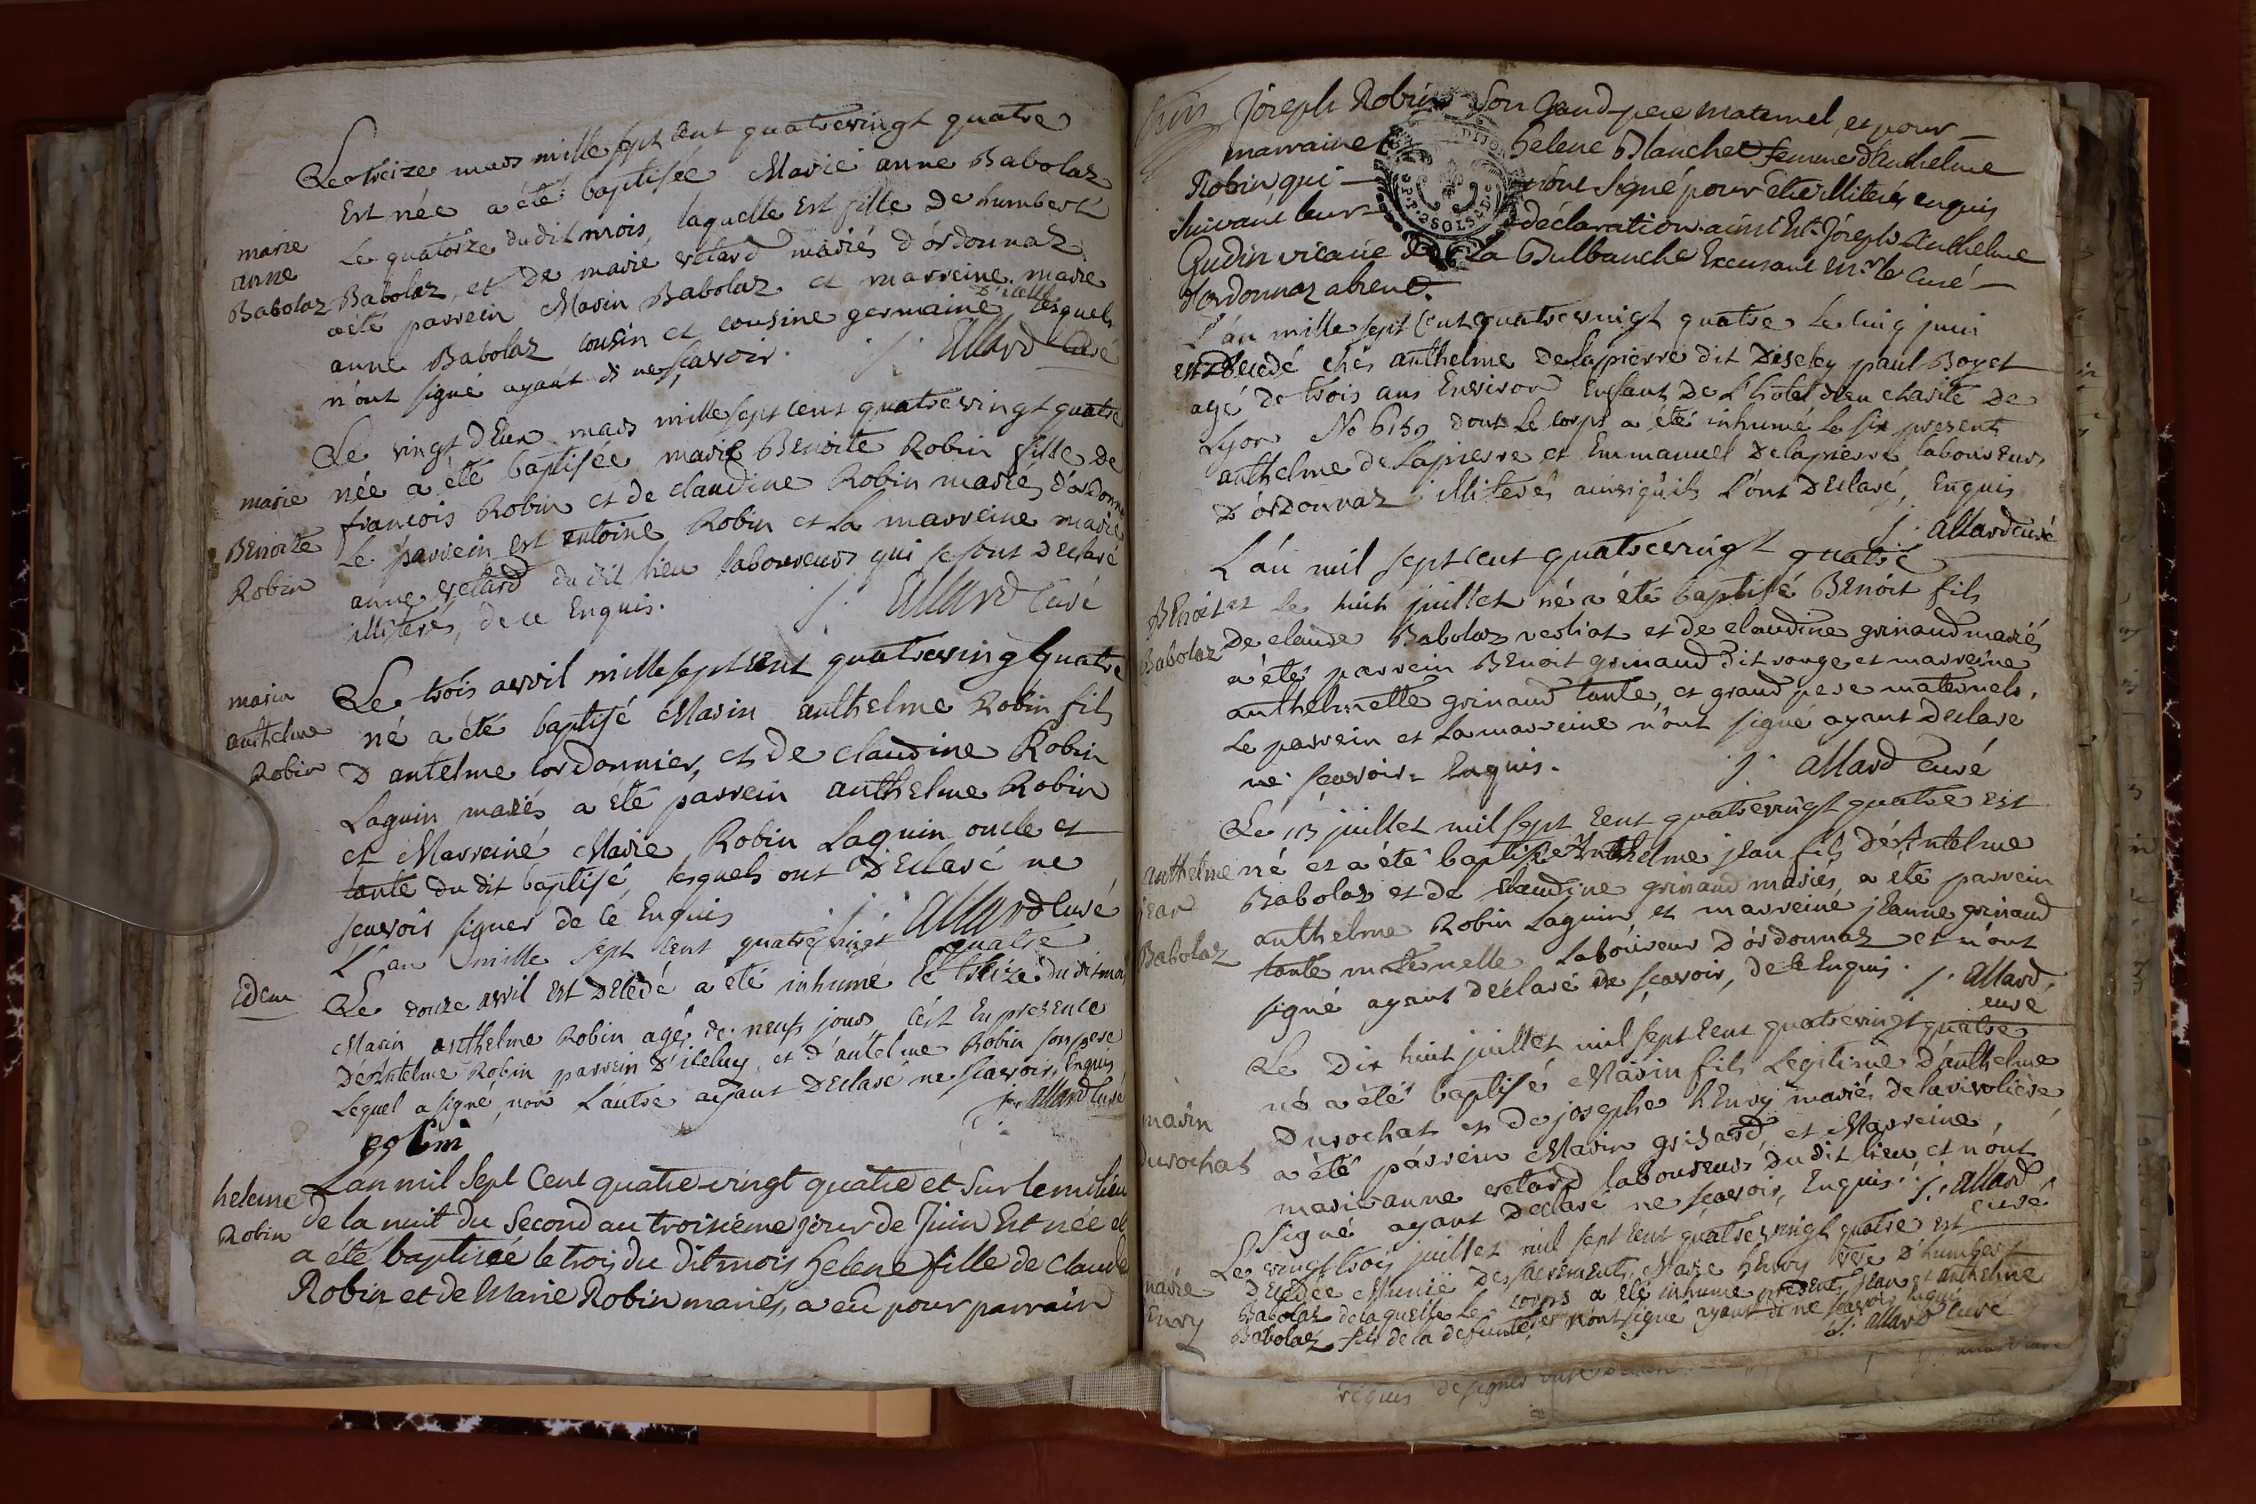 Le treize mars mille sept cent quatrevingt quatre
Est née a été baptisée Marie anne Babolaz
marie
anne
Babolaz
Le quatorze dudit mois, laquelle Est fille De humbert
Babolaz, et De marie retard mariés d'ordonnaz
a été parrein Marin Babolaz et marreine marie
anne Babolaz cousin et cousine germaine D'icelle lesquels
n'ont signé ayant dit ne sçavoir. j. allard Curé
Le vingt deux mars mille sept cent quatrevingt quatre
marie
Benoite
Robin
née a été baptisée marie Benoite Robin fille de
francois Robin et de claudine Robin mariés d'ordonnaz
Le parrein est antoine Robin et la marreine marie
anne retard du dit lieu laboureurs qui se sont Declaré
illiterés, de ce Enquis. j. allard Curé
marin
anthelme
Robin
Le trois avril mille sept cent quatrevingt quatre
né a été baptisé Marin anthelme Robin fils
D'antelme cordonnier, et de claudine Robin
Laguin mariés a eté parrein anthelme Robin
et Marreine Marie Robin Laguin oncle et
tante du dit baptisé, lesquels ont Declaré ne
sçavoir signer de ce Enquis j. allard Curé
L'an mille sept cent quatrevingt quatre
idem
Le douze avril est Decedé a eté inhumé Le treize du dit mois
Marin anthelme Robin agé de neuf jours C'est En presence
De Antelme Robin parrein D'iceluy, et d'antelme Robin son pere
Lequel a signé, non L'autre ayant Declaré ne sçavoir, Enquis
j. allard Curé
robin
helene
Robin
L'an mil Sept Cent quatre-vingt quatre et sur le milieu
de la nuit du Second au troisieme jour de Juin Est née et
a été baptisée le trois du dit mois helene fille de Claude
Robin et de Marie Robin mariés, a eû pour parrain
Joseph Robin Son Gand-pere maternel, et pour
marraine helene Blanchet femme d'Anthelme
Robin qui n'ont Signé pour être illiterés enquis
Suivant leur déclaration. ainsi Est. Joseph Anthelme
Gudin vicaire de La Bulbanche Excusant Mr. le Curé
d'ordonnaz absent.
L'an mille sept cent quatrevingt quatre Le cinq juin
est Decedé chés anthelme Delapierre dit Diseley paul Boyet
agé de trois ans Environ Enfant De L'hotel dieu charité De
Lyon No 6159 dont Le corps a été inhumé Le six present
anthelme de Lapierre et Emmanuel Delapierre laboureurs
D'ordonnaz illiterés ainsi qu'ils L'ont Declaré, Enquis
j. allard curé
L'an mil sept cent quatrevingt quatre
Benoit
Babolaz
et Le huit juillet né a été baptisé Benoit fils
De claude Babolaz et de claudine grinaud mariés
a été parrein Benoit grinaud dit rouge et marreine
anthelmette grinaud tante, et grand pere maternels,
Le parrein et La marreine n'ont signé ayant Declaré
ne sçavoir Enquis. j. allard curé
anthelme
jean
Babolaz
Le 13 juillet mil sept cent quatrevingt quatre est
né et a été baptisé Anthelme jean fils De Antelme
Babolaz et de claudine grinaud mariés, a été parrein
anthelme Robin Laguin et marreine jeanne grinaud
tante maternelle Laboureur D'ordonnaz et n'ont
signé ayant Declaré ne sçavoir, de ce Enquis. j. allard
curé
marin
durochat
Le Dix huit juillet mil sept cent quatrevingt quatre
né a été baptisé Marin fils Legitime D'anthelme
Durochat et de josephe hEnry mariés de la rivoliere
a été parrein Marin grisard et Marreine
marie anne retard laboureurs du dit lieu et n'ont
signé ayant Declaré ne sçavoir, Enquis. j. allard
curé
marie
hEnry
Le vingt trois juillet mil sept cent quatrevingt quatre est
Decedée Munie Des sacrements Marie hEnry D'humbert
Babolaz de laquelle Le corps a été inhumé presents jean et anthelme
Babolaz fils de la defunte, n'ont signé ayant dit ne sçavoir Enquis
j. allard curé